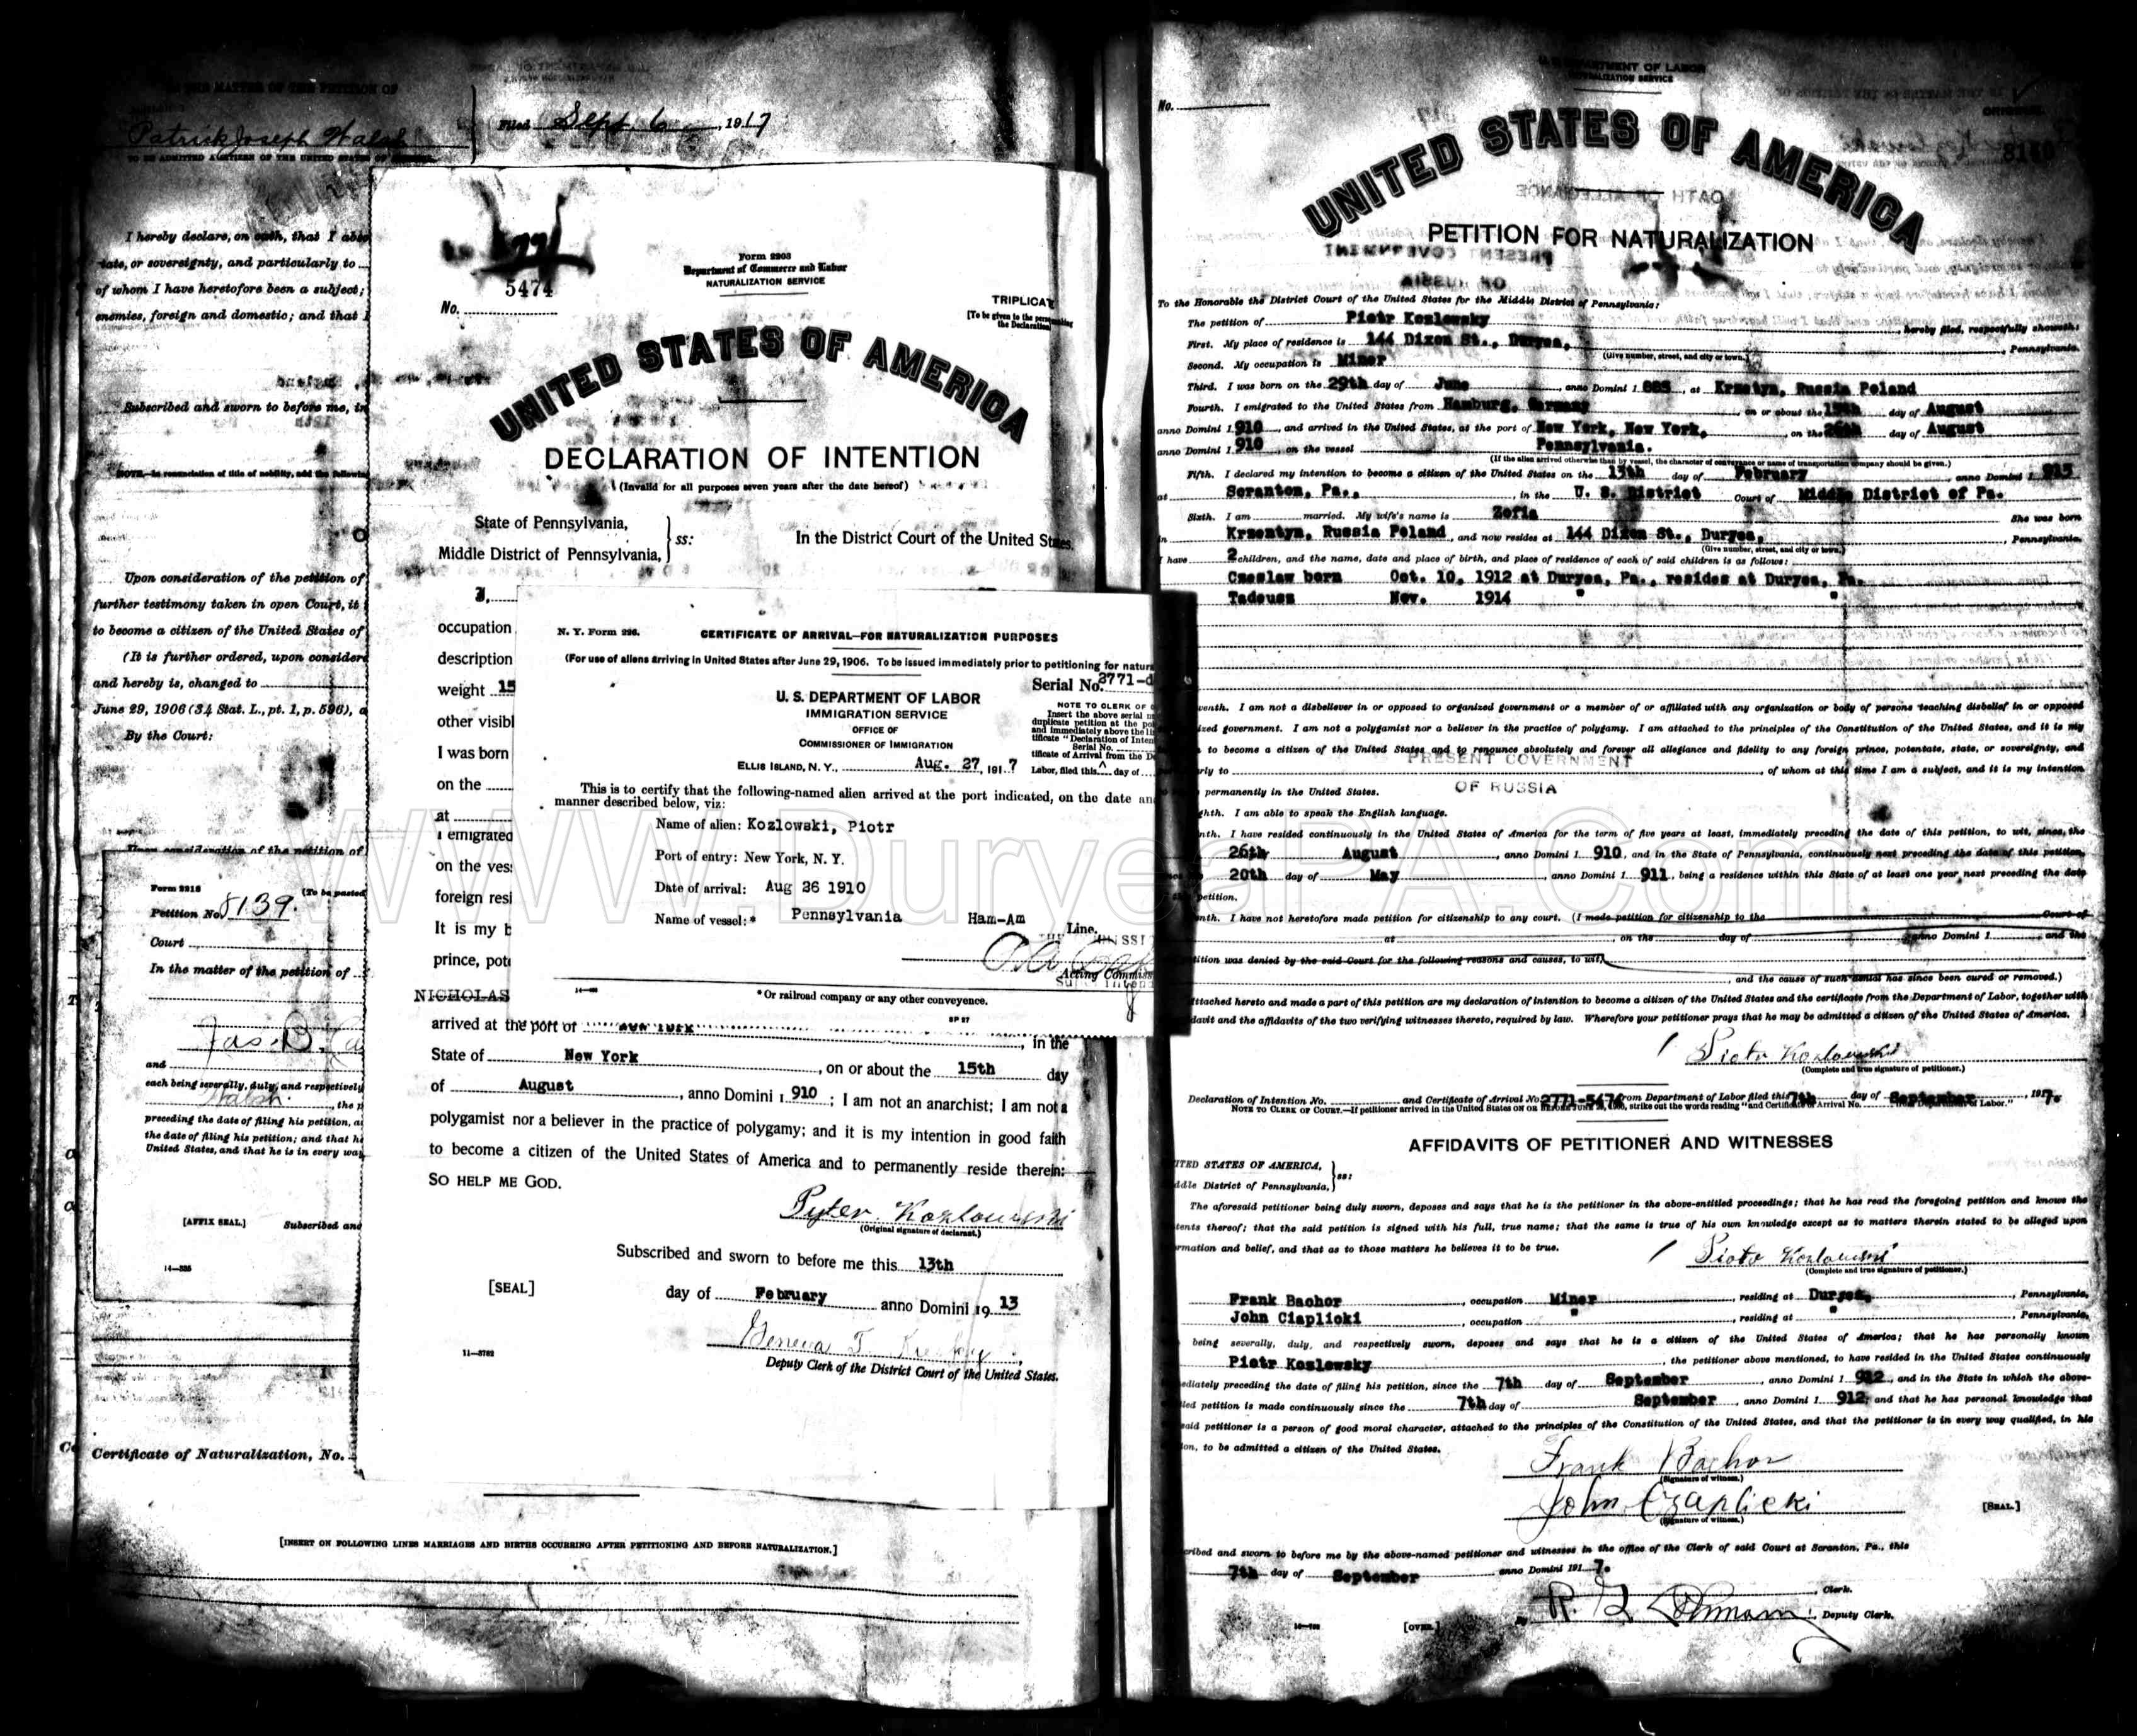 IN THE MATTER OF THE PETITION OF
Patrick Joseph Walsh
TO BE ADMITTED A CITIZEN OF THE UNITED STATES OF AMERICA.
Filed Sept. 6, 1917
I hereby declare, on oath, that I
state, or sovereignty, and particularly to
of whom I have heretofore been a subject;
enemies, foreign and domestic; and that I
Subscribed and sworn to before me, in
NOTE.—In renunciation of title of nobility, add the following
Upon consideration of the petition of
further testimony taken in open Court, it
to become a citizen of the United States of
(It is further ordered, upon
and hereby is, changed to
June 29, 1906 (34 Stat. L., pt. 1, p. 596), a
By the Court:
Upon consideration of the petition of
Form 2218
(To be pasted
Petition No. 8139.
Court
In the matter of the petition of
Jas. B.
and
each being severally, duly, and respectively
Walsh.
, the p
preceding the date of filing his petition, a
the date of filing his petition; and that he
United States, and that he is in every way
[AFFIX SEAL.] Subscribed and
Certificate of Naturalization, No.
[INSERT ON FOLLOWING LINES MARRIAGES AND BIRTHS OCCURRING AFTER PETITIONING AND BEFORE NATURALIZATION.]
Form 2203
Department of Commerce and Labor
NATURALIZATION SERVICE
No. 5474
TRIPLICATE
[To be given to the person making the Declaration]
UNITED STATES OF AMERICA
DECLARATION OF INTENTION
(Invalid for all purposes seven years after the date hereof)
State of Pennsylvania,
Middle District of Pennsylvania,
ss:
In the District Court of the United States.
I,
occupation
description
weight 15
other visibl
I was born
on the
at
I emigrated
on the ves
foreign resi
It is my b
prince, pot
NICHOLAS
arrived at the port of New York, in the
State of New York, on or about the 15th day
of August, anno Domini 1 910; I am not an anarchist; I am not a
polygamist nor a believer in the practice of polygamy; and it is my intention in good faith
to become a citizen of the United States of America and to permanently reside therein:
SO HELP ME GOD.
Pyter Kozlowski
(Original signature of declarant.)
Subscribed and sworn to before me this 13th
[SEAL] day of February anno Domini 19 13
Deputy Clerk of the District Court of the United States.
11—3782
N. Y. Form 226.
CERTIFICATE OF ARRIVAL—FOR NATURALIZATION PURPOSES
(For use of aliens arriving in United States after June 29, 1906. To be issued immediately prior to petitioning for natura
Serial No. 2771-d
U. S. DEPARTMENT OF LABOR
IMMIGRATION SERVICE
OFFICE OF
COMMISSIONER OF IMMIGRATION
NOTE TO CLERK OF
Insert the above serial
duplicate petition at the
and immediately above the
tificate "Declaration of Inten
Serial No.
tificate of Arrival from the De
Labor, filed this day of
ELLIS ISLAND, N. Y., Aug. 27, 1917
This is to certify that the following-named alien arrived at the port indicated, on the date an
manner described below, viz:
Name of alien: Kozlowski, Piotr
Port of entry: New York, N. Y.
Date of arrival: Aug 26 1910
Name of vessel:* Pennsylvania Ham-Am Line.
Acting Commiss
*Or railroad company or any other conveyence.
U. S. DEPARTMENT OF LABOR
NATURALIZATION SERVICE
No.
ORIGINAL
8140
UNITED STATES OF AMERICA
PETITION FOR NATURALIZATION
To the Honorable the District Court of the United States for the Middle District of Pennsylvania:
The petition of Piotr Kozlowsky hereby filed, respectfully showeth:
First. My place of residence is 144 Dixon St., Duryea, Pennsylvania.
(Give number, street, and city or town.)
Second. My occupation is Miner
Third. I was born on the 29th day of June, anno Domini 1 885, at Krzetyn, Russia Poland
Fourth. I emigrated to the United States from Hamburg, Germany, on or about the 15th day of August
anno Domini 1 910, and arrived in the United States, at the port of New York, New York, on the 26th day of August
anno Domini 1 910, on the vessel Pennsylvania.
(If the alien arrived otherwise than by vessel, the character of conveyance or name of transportation company should be given.)
Fifth. I declared my intention to become a citizen of the United States on the 13th day of February, anno Domini 1 913
at Scranton, Pa., in the U. S. District Court of Middle District of Pa.
Sixth. I am married. My wife's name is Zofia She was born
in Krzentyn, Russia Poland, and now resides at 144 Dixon St., Duryea, Pennsylvania.
(Give number, street, and city or town.)
I have 2 children, and the name, date and place of birth, and place of residence of each of said children is as follows:
Czeslaw born Oct. 10, 1912 at Duryea, Pa., resides at Duryea, Pa.
Tadeusz Nov. 1914 " "
Seventh. I am not a disbeliever in or opposed to organized government or a member of or affiliated with any organization or body of persons teaching disbelief in or opposed
ized government. I am not a polygamist nor a believer in the practice of polygamy. I am attached to the principles of the Constitution of the United States, and it is my
to become a citizen of the United States and to renounce absolutely and forever all allegiance and fidelity to any foreign prince, potentate, state, or sovereignty, and
rly to PRESENT GOVERNMENT OF RUSSIA, of whom at this time I am a subject, and it is my intention
permanently in the United States.
ghth. I am able to speak the English language.
nth. I have resided continuously in the United States of America for the term of five years at least, immediately preceding the date of this petition, to wit, since, the
26th August, anno Domini 1 910, and in the State of Pennsylvania, continuously next preceding the date of this petition,
20th day of May, anno Domini 1 911, being a residence within this State of at least one year next preceding the date
petition.
nth. I have not heretofore made petition for citizenship to any court. (I made petition for citizenship to the Court of
at , on the day of , anno Domini 1 , and the
etition was denied by the said Court for the following reasons and causes, to wit,
, and the cause of such denial has since been cured or removed.)
Attached hereto and made a part of this petition are my declaration of intention to become a citizen of the United States and the certificate from the Department of Labor, together with
davit and the affidavits of the two verifying witnesses thereto, required by law. Wherefore your petitioner prays that he may be admitted a citizen of the United States of America.
Piotr Kozlowski
(Complete and true signature of petitioner.)
Declaration of Intention No. and Certificate of Arrival No. 2771-5474 from Department of Labor filed this 7th day of September, 1917.
NOTE TO CLERK OF COURT.—If petitioner arrived in the United States ON OR BEFORE JUNE 29, 1906, strike out the words reading "and Certificate of Arrival No. from Department of Labor."
AFFIDAVITS OF PETITIONER AND WITNESSES
ITED STATES OF AMERICA,
ddle District of Pennsylvania,
ss:
The aforesaid petitioner being duly sworn, deposes and says that he is the petitioner in the above-entitled proceedings; that he has read the foregoing petition and knows the
tents thereof; that the said petition is signed with his full, true name; that the same is true of his own knowledge except as to matters therein stated to be alleged upon
rmation and belief, and that as to those matters he believes it to be true.
Piotr Kozlowski
(Complete and true signature of petitioner.)
Frank Bachor, occupation Miner, residing at Duryea, Pennsylvania,
John Ciaplicki, occupation ", residing at ", Pennsylvania,
being severally, duly, and respectively sworn, deposes and says that he is a citizen of the United States of America; that he has personally known
Piotr Kozlowsky, the petitioner above mentioned, to have resided in the United States continuously
ediately preceding the date of filing his petition, since the 7th day of September, anno Domini 1 912, and in the State in which the above-
led petition is made continuously since the 7th day of September, anno Domini 1 912; and that he has personal knowledge that
said petitioner is a person of good moral character, attached to the principles of the Constitution of the United States, and that the petitioner is in every way qualified, in his
ion, to be admitted a citizen of the United States.
Frank Bachor
(Signature of witness.)
John Czaplicki
(Signature of witness.)
[SEAL.]
cribed and sworn to before me by the above-named petitioner and witnesses in the office of the Clerk of said Court at Scranton, Pa., this
7th day of September anno Domini 191 7.
, Clerk.
, Deputy Clerk.
[OVER.]
WWW.DuryeaPA.Com